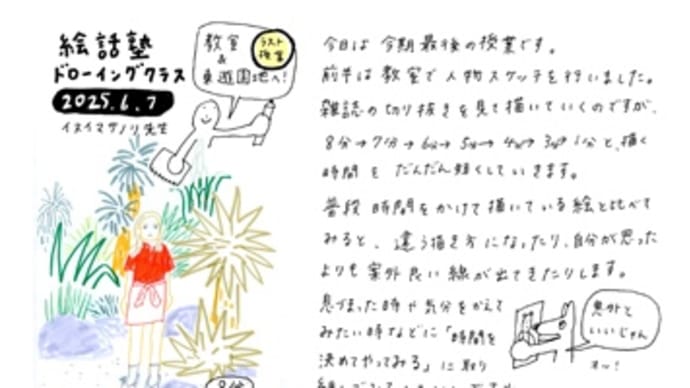 絵話塾
ドローイングクラス
2025.6.7
イヌイマサノリ先生
教室
&
東遊園地へ!
ラスト
授業
今日は今期最後の授業です。
前半は教室で人物スケッチを行いました。
雑誌の切り抜きを見て描いていくのですが、
8分→7分→6分→5分→4分→3分→1分と、描く
時間をだんだん短くしていきます。
普段時間をかけて描いている絵と比べて
みると、違う描き方になったり、自分が思った
よりも案外良い線が出てきたりします。
息づまった時や気分をかえて
みたい時などに「時間を
決めてやってみる」に取り
意外と
いいじゃん
オッ!